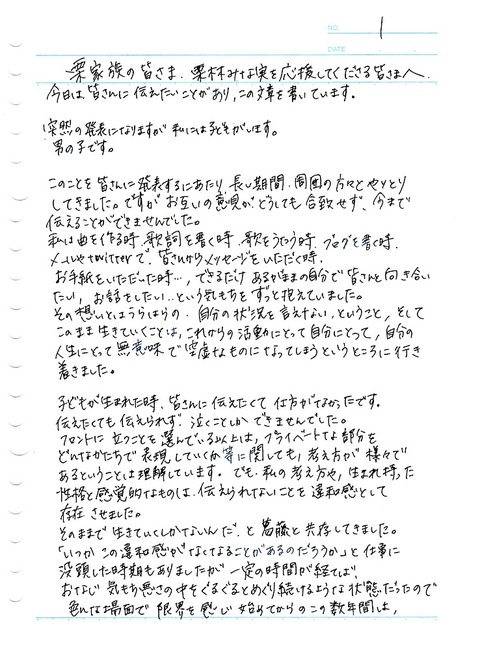 NO. 1
DATE
栗家族の皆さま、栗林みな実を応援してくださる皆さまへ
今日は皆さんに伝えたいことがあり、この文章を書いています。
突然の発表になりますが 私には子どもがいます。
男の子です。
このことを皆さんに発表するにあたり、長い期間、周囲の方々とやりとり
してきました。ですが お互いの意見が どうしても合致せず、今まで
伝えることができませんでした。
私は曲を作る時、歌詞を書く時、歌をうたう時、ブログを書く時、
メールやtwitterで、皆さんからメッセージをいただく時、
お手紙をいただいた時…、できるだけ あるがままの自分で 皆さんと向き合い
たい、お話をしたい…という気もちを ずっと抱えていました。
その想いとはうらはらの、自分の状況を言えない、ということ、そして
このまま生きていくことは、これからの活動にとって 自分にとって、自分の
人生にとって 無意味で 空虚なものになってしまうというところに行き
着きました。
子どもが生まれた時、皆さんに伝えたくて 仕方がなかったです。
伝えたくても伝えられず 泣くことしか できませんでした。
フロントに 立つことを 選んでいる以上は、プライベートな部分を
どのようなかたちで 表現していくか等に関しても、考え方が 様々で
あるということは理解しています。でも、私の 考え方や、生まれ持った
性格と感覚的なものは、伝えられないことを 違和感として
存在 させました。
そのままで 生きていくしかないんだ、と 葛藤と 共存してきました。
「いつか この違和感がなくなることがあるのだろうか」と 仕事に
没頭した時期もありましたが 一定の時間が経てば、
おなじ 気もち悪さの中をぐるぐるとめぐり続けるような 状態だったので
色んな場面で 限界を感じ 始めてからのこの数年間は、